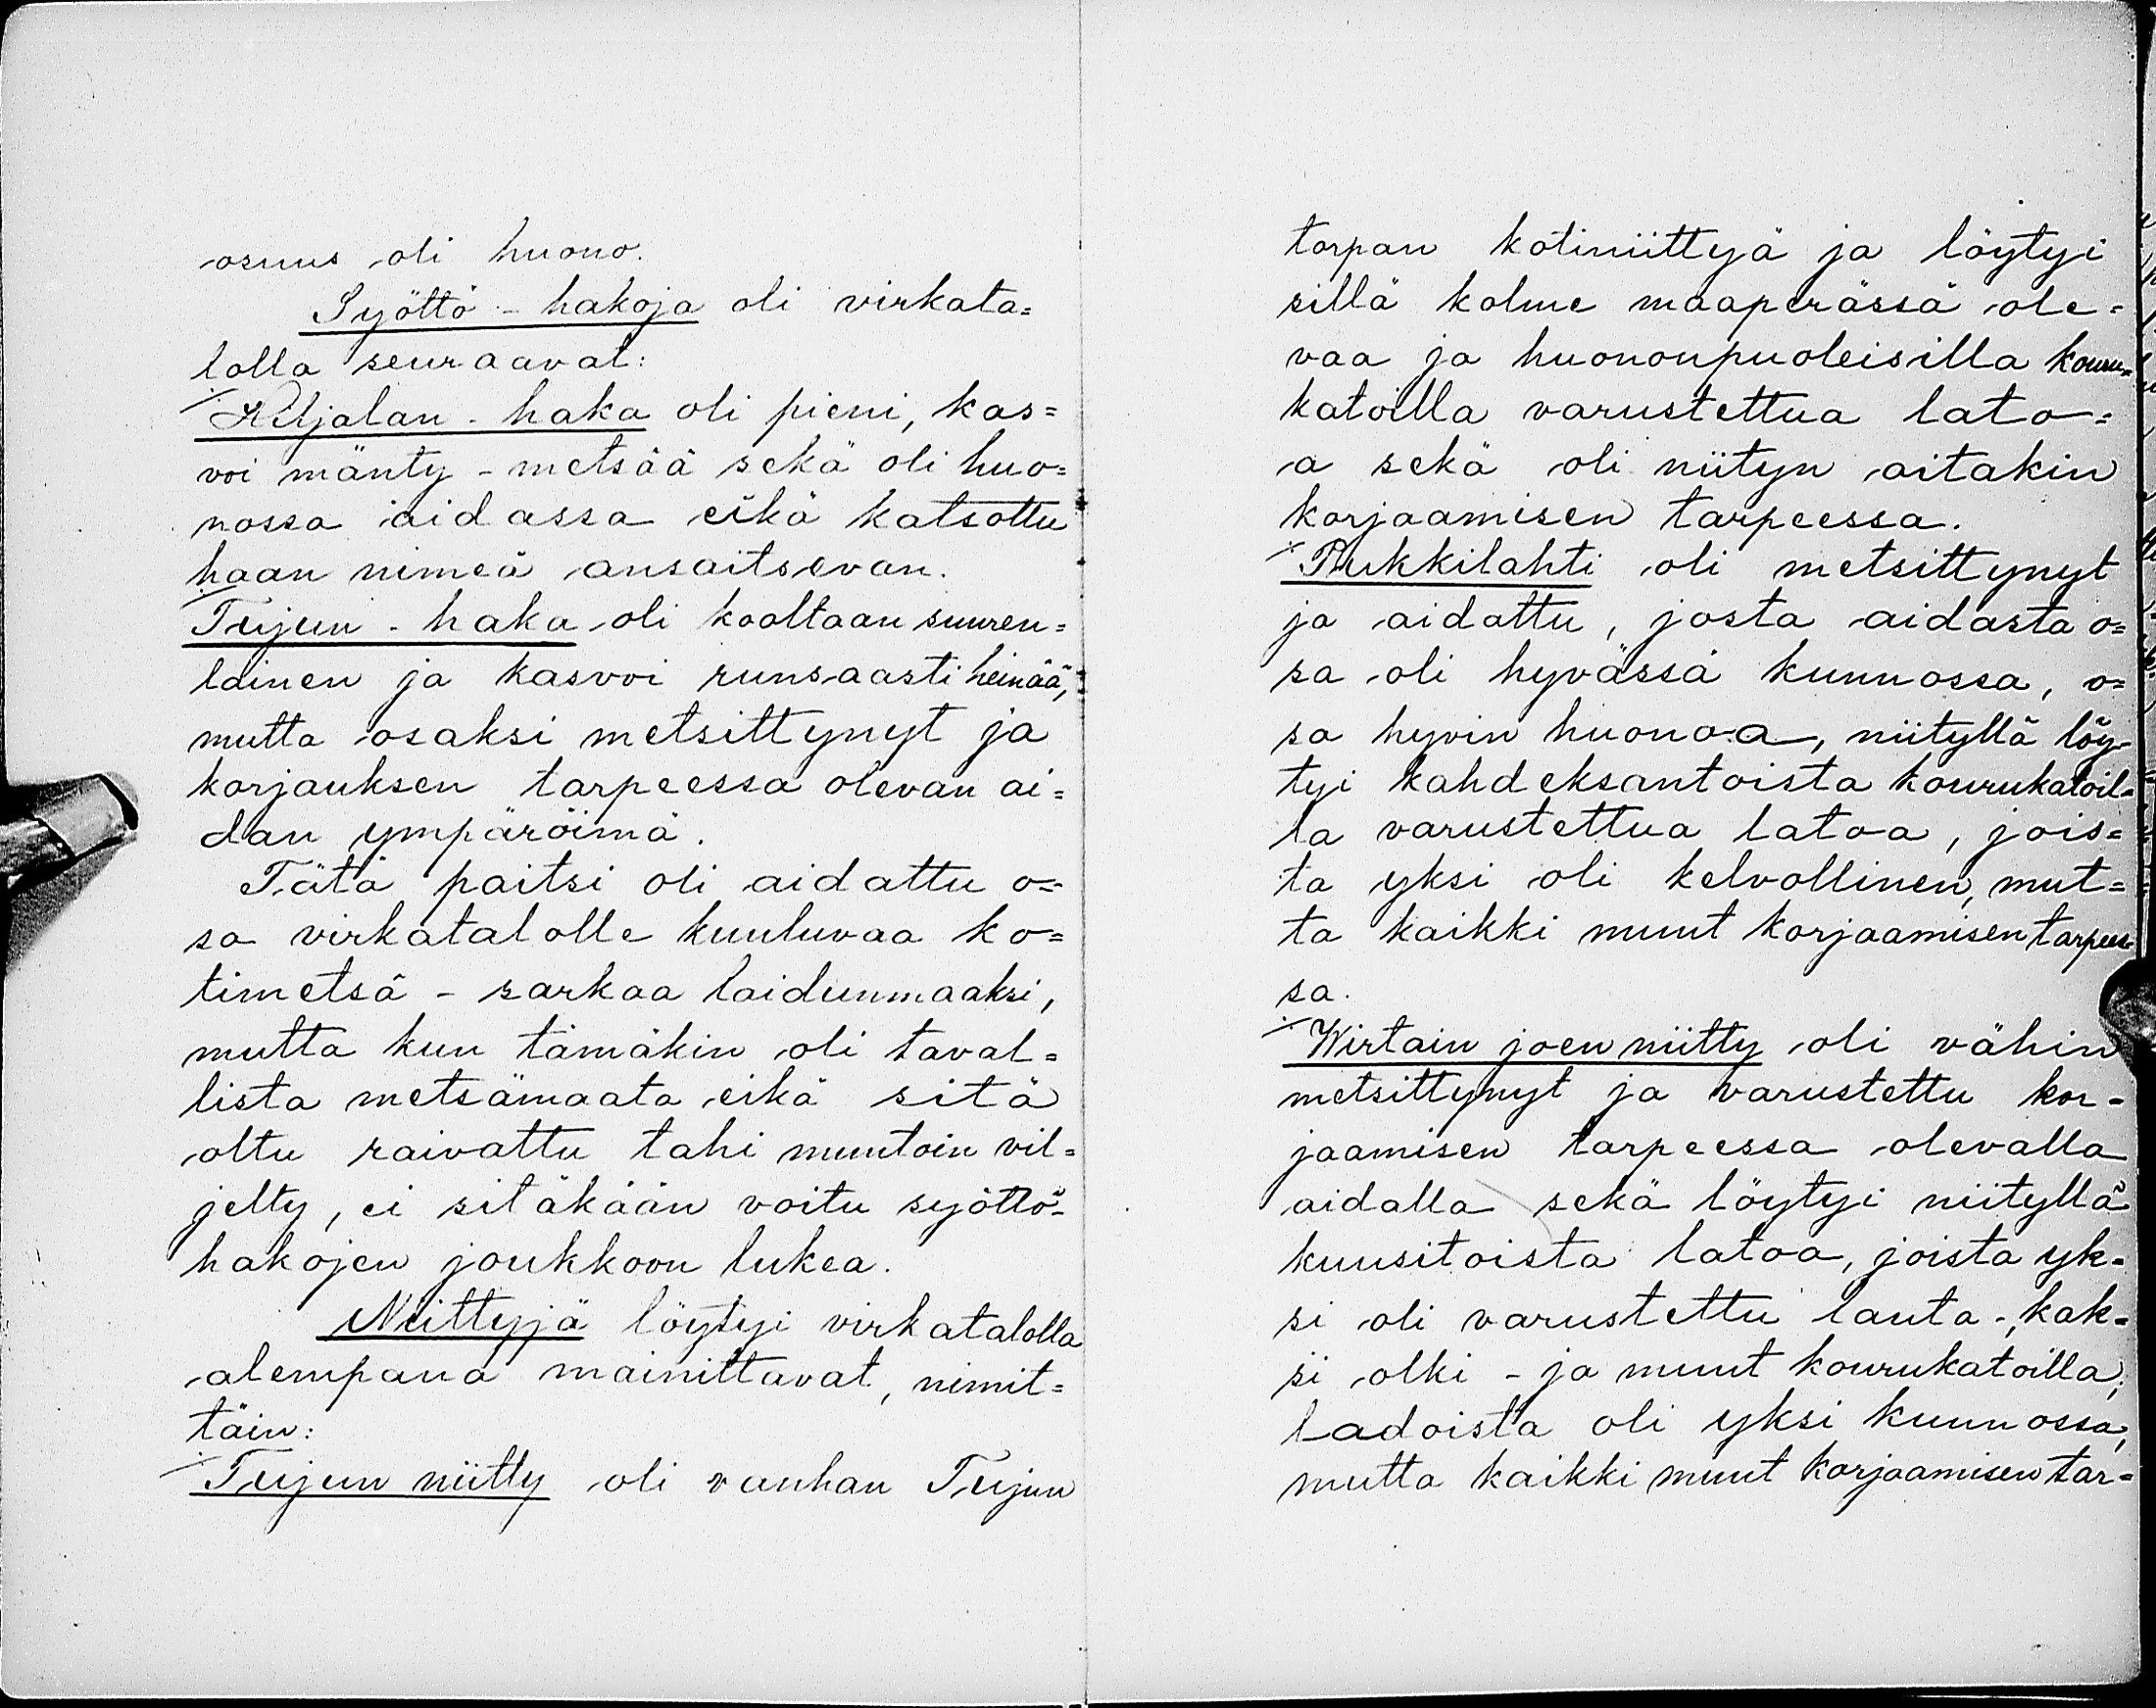 osuus oli huono.
Syöttö-hakoja oli virkata=
lolla seuraavat:
Kiljalan-haka oli pieni, kas=
voi mänty-metsää sekä oli huo=
nossa aidassa eikä katsottu
haan nimeä ansaitsevan.
Tujun-haka oli kooltaan suuren=
lainen ja kasvoi runsaasti heinää,
mutta osaksi metsittynyt ja
korjauksen tarpeessa olevan ai=
dan ympäröimä.
Tätä paitsi oli aidattu o=
sa virkatalolle kuuluvaa ko=
timetsä-sarkaa laidunmaaksi,
mutta kun tämäkin oli taval=
lista metsämaata eikä sitä
oltu raivattu tahi muutoin vil=
jelty, ei sitäkään voitu syöttö-
hakojen joukkoon lukea.
Niittyjä löytyi virkatalolla
alempana mainittavat, nimit=
täin:
Tujun niitty oli vanhan Tujun
torpan kotiniittyä ja löytyi
sillä kolme maaperässä ole=
vaa ja huononpuoleisilla kouru=
katoilla varustettua lato=
a sekä oli niityn aitakin
korjaamisen tarpeessa.
Pukkilahti oli metsittynyt
ja aidattu, josta aidasta o=
sa oli hyvässä kunnossa, o=
sa hyvin huonoa, niityllä löy-
tyi kahdeksantoista kourukatoil=
la varustettua latoa, jois=
ta yksi oli kelvollinen, mut=
ta kaikki muut korjaamisen tarpees-
sa.
Wirtain joen niitty oli vähin
metsittynyt ja varustettu kor=
jaamisen tarpeessa olevalla
aidalla sekä löytyi niityllä
kuusitoista latoa, joista yk=
si oli varustettu lauta-, kak=
si olki- ja muut kourukatoilla,
ladoista oli yksi kunnossa,
mutta kaikki muut korjaamisen tar=